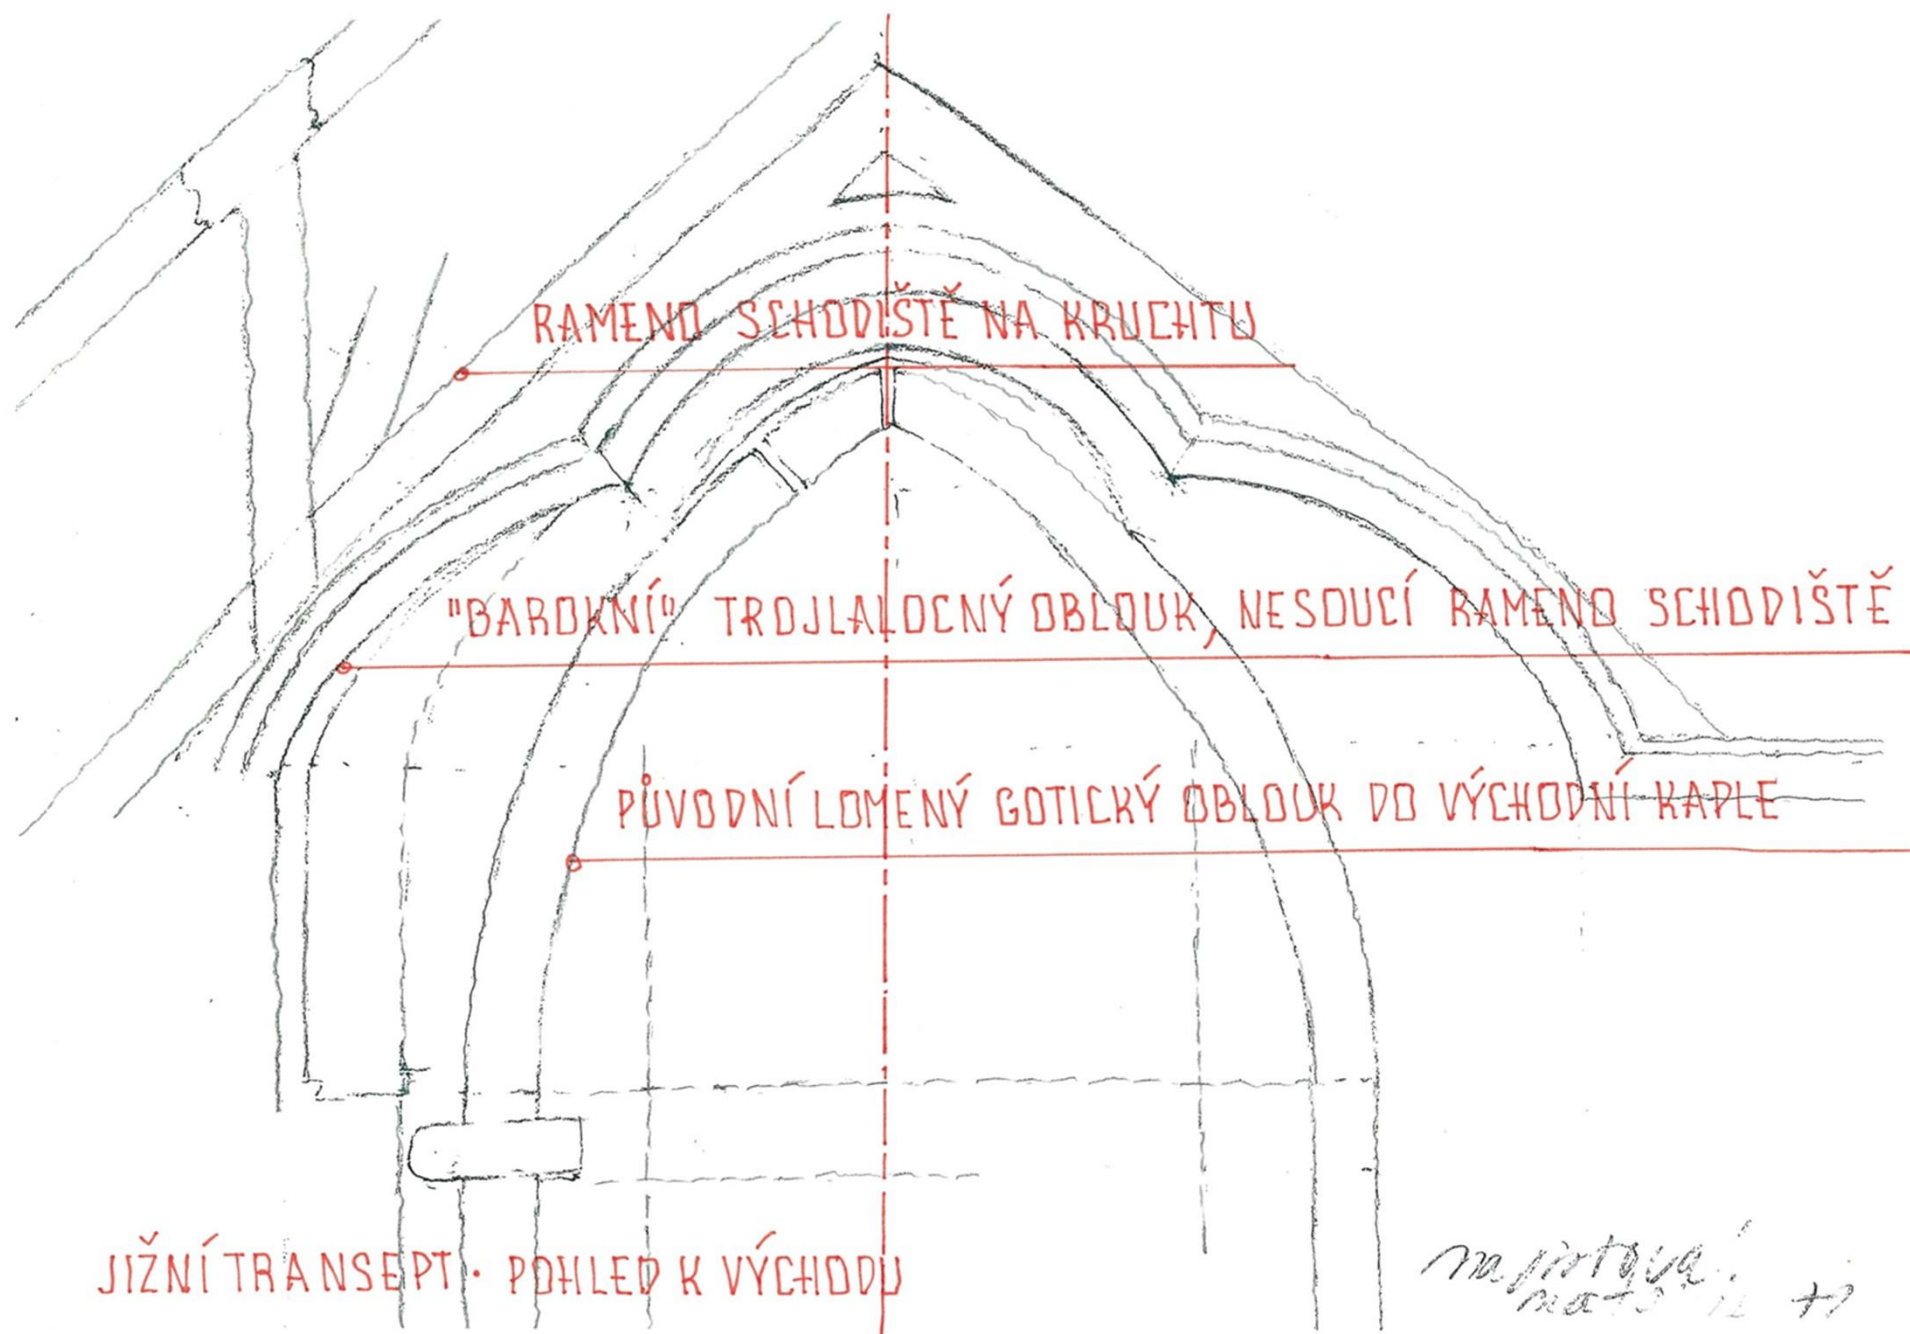 RAMENO SCHODIŠTĚ NA KRUCHTU
"BAROKNÍ" TROJLALOČNÝ OBLOUK, NESOUCÍ RAMENO SCHODIŠTĚ
PŮVODNÍ LOMENÝ GOTICKÝ OBLOUK DO VÝCHODNÍ KAPLE
JIŽNÍ TRANSEPT · POHLED K VÝCHODU